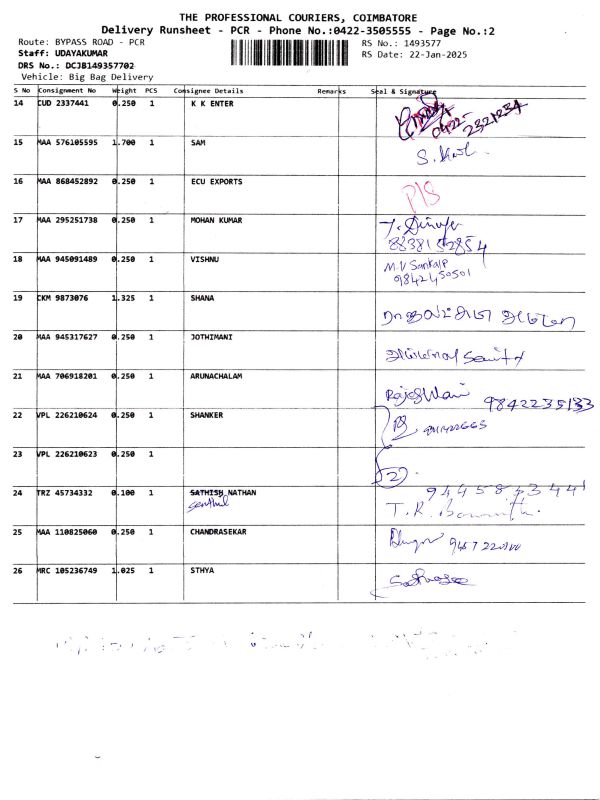 THE PROFESSIONAL COURIERS, COIMBATORE
Delivery Runsheet - PCR - Phone No.:0422-3505555 - Page No.:2
Route: BYPASS ROAD - PCR
RS No.: 1493577
Staff: UDAYAKUMAR
RS Date: 22-Jan-2025
DRS No.: DCJB149357702
Vehicle: Big Bag Delivery
S No Consignment No Weight PCS Consignee Details Remarks Seal & Signature
14 CUD 2337441 0.250 1 K K ENTER
0422-2321234
15 MAA 576105595 1.700 1 SAM
16 MAA 868452892 0.250 1 ECU EXPORTS
17 MAA 295251738 0.250 1 MOHAN KUMAR
8838152854
18 MAA 945091489 0.250 1 VISHNU M.V Sankalp
9842450501
19 CKM 9873076 1.325 1 SHANA
20 MAA 945317627 0.250 1 JOTHIMANI
21 MAA 706918201 0.250 1 ARUNACHALAM
9842235133
22 VPL 226210624 0.250 1 SHANKER
23 VPL 226210623 0.250 1 2
24 TRZ 45734332 0.100 1 SATHISH NATHAN
Senthil
T.R.
25 MAA 110825060 0.250 1 CHANDRASEKAR
26 MRC 105236749 1.025 1 STHYA